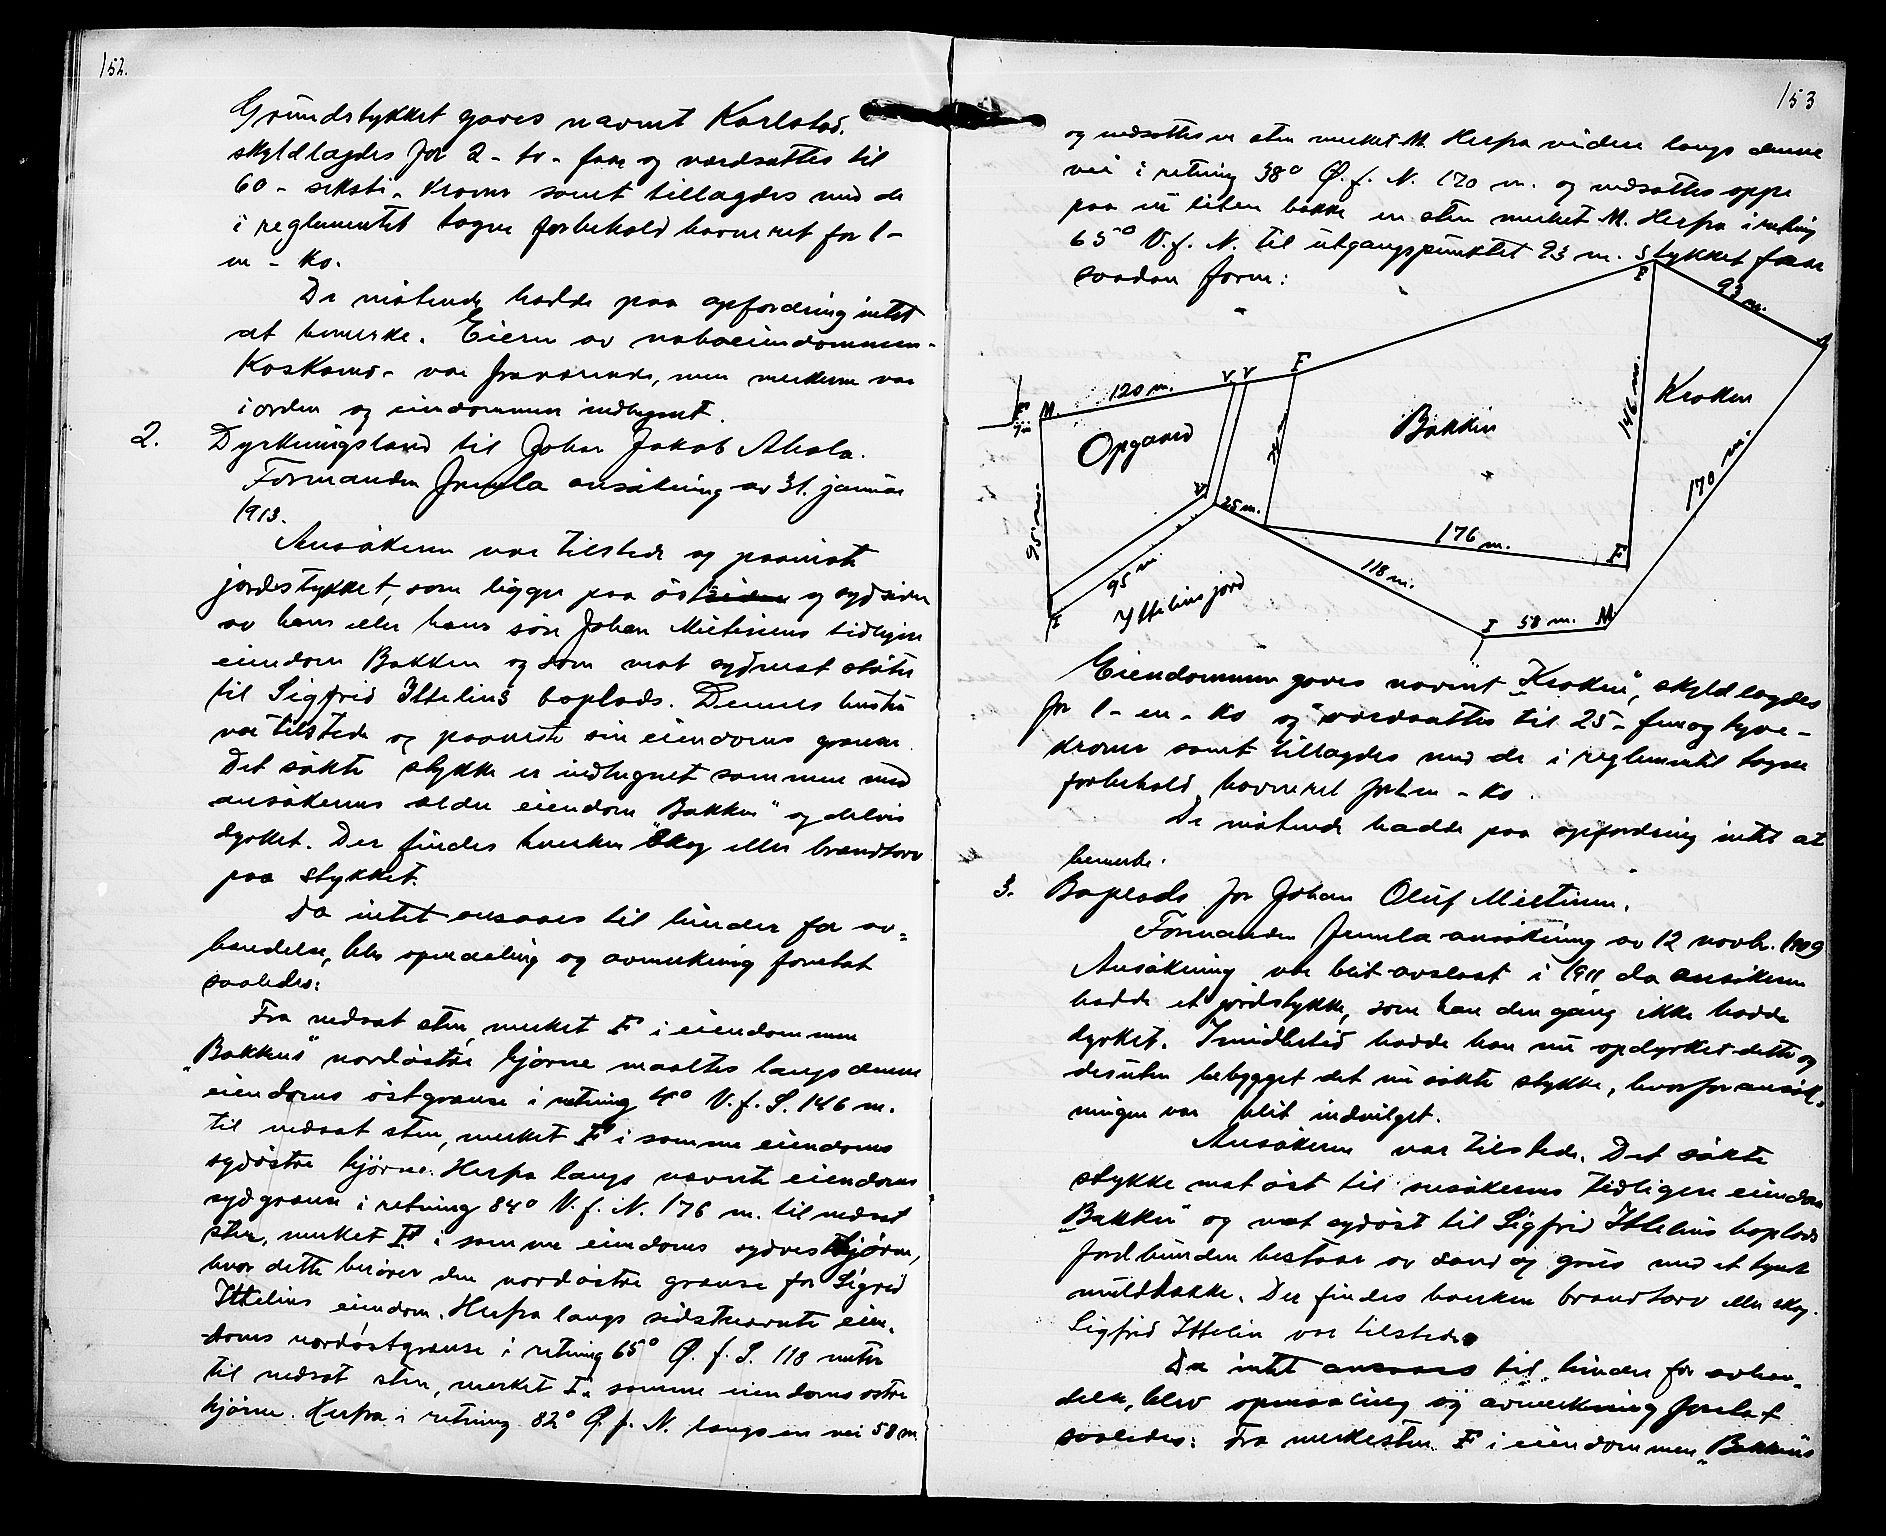 152.
Grundstykket gaves navnet Karlstad.
skyldlagdes for 2 - to - faar og værdsattes til
60 - seksti - kroner samt tillagdes med de
i reglementet tagne forbehold havneret for 1 -
en - ko.
De møtende hadde paa opfordring intet
at bemerke. Eieren av naboeiendommen -
Koskamo - var fraværende, men merkerne var
i orden og eiendommen indhegnet.
2. Dyrkningsland til Johan Jakob
Formanden ansøkning av 31. januar
1913.
Ansøkeren var tilstede og paaviste
jordstykket, som ligger paa østsiden og sydsiden
av hans eller hans søn Johan tidligere
eiendom Bakken og som mot sydvest støter
til Sigfrid Ittelins boplads. Dennes hustru
var tilstede og paaviste sin eiendoms grænser.
Det søkte stykke er indhegnet sammen med
ansøkerens ældre eiendom Bakken" og delvis
dyrket. Der findes hverken skog eller brændtorv
paa stykket.
Da intet ansaaes til hinder for av-
hændelse, blev opmaaling og avmerking foretat
saaledes:
Fra nedsat sten, merket F i eiendommen
„Bakkens" nordøstre hjørne maaltes langs denne
eiendoms østgrænse i retning 4° V. f. S. 146 m.
til nedsat sten, merket F i samme eiendoms
sydøstre hjørne. Herfra langs nævnte eiendoms
sydgrænse i retning 84° V. f. N. 176 m. til nedsat
sten, merket F i samme eiendoms sydvest hjørne,
hvor dette berører den nordøstre grænse for Sigrid
Ittelins eiendom. Herfra langs sidstnævnte eien-
doms nordøstgrænse i retning 65° Ø. f. S. 118 meter
til nedsat sten, merket I. samme eiendoms østre
hjørne. Herfra i retning 82° Ø. f. N. langs en vei 58 m.
153
og nedsattes en sten merket M. Herfra videre langs denne
vei i retning 38° Ø. f. N. 170 m. og nedsattes oppe
paa en liten bakke en sten merket M. Herfra i retning
65° V. f. N. til utgangspunktet 93 m. Stykket faar
saadan form:
F
93 m.
120 m.
V V
F
M
Opgaard
Bakken
146 m.
Kroken
170 m.
95 m.
25 m.
176 m.
F
95 m
118 m.
Ittelins jord
I
58 m.
M
Eiendommen gaves navnet „Kroken", skyldlagdes
for 1 - en - ko og værdsattes til 25 - fem og tyve -
kroner samt tillagdes med de i reglementet tagne
forbehold havneret for 1 en - ko.
De møtende hadde paa opfordring intet at
bemerke.
3. Boplads for Johan Oluf
Formanden ansøkning av 12 novbr. 1909
Ansøkning var blit avslaat i 1911, da ansøkeren
hadde et jordstykke, som han den gang ikke hadde
dyrket. Imidlertid hadde han nu opdyrket dette og
desuten bebygget det nu søkte stykke, hvorfor ansøk-
ningen var blit indvilget.
Ansøkeren var tilstede. Det søkte
stykke mot øst til ansøkerens tidligere eiendom
„Bakken" og mot sydøst til Sigfrid Ittelins boplads
Jordbunden bestaar av sand og grus med et tyndt
mulddække. Der findes hverken brændtorv eller skog.
Sigfrid Ittelin var tilstede.
Da intet ansaaes til hinder for avhæn-
delse, blev opmaaling og avmerkning foretat
saaledes: Fra merkesten F i eiendommen „Bakkens